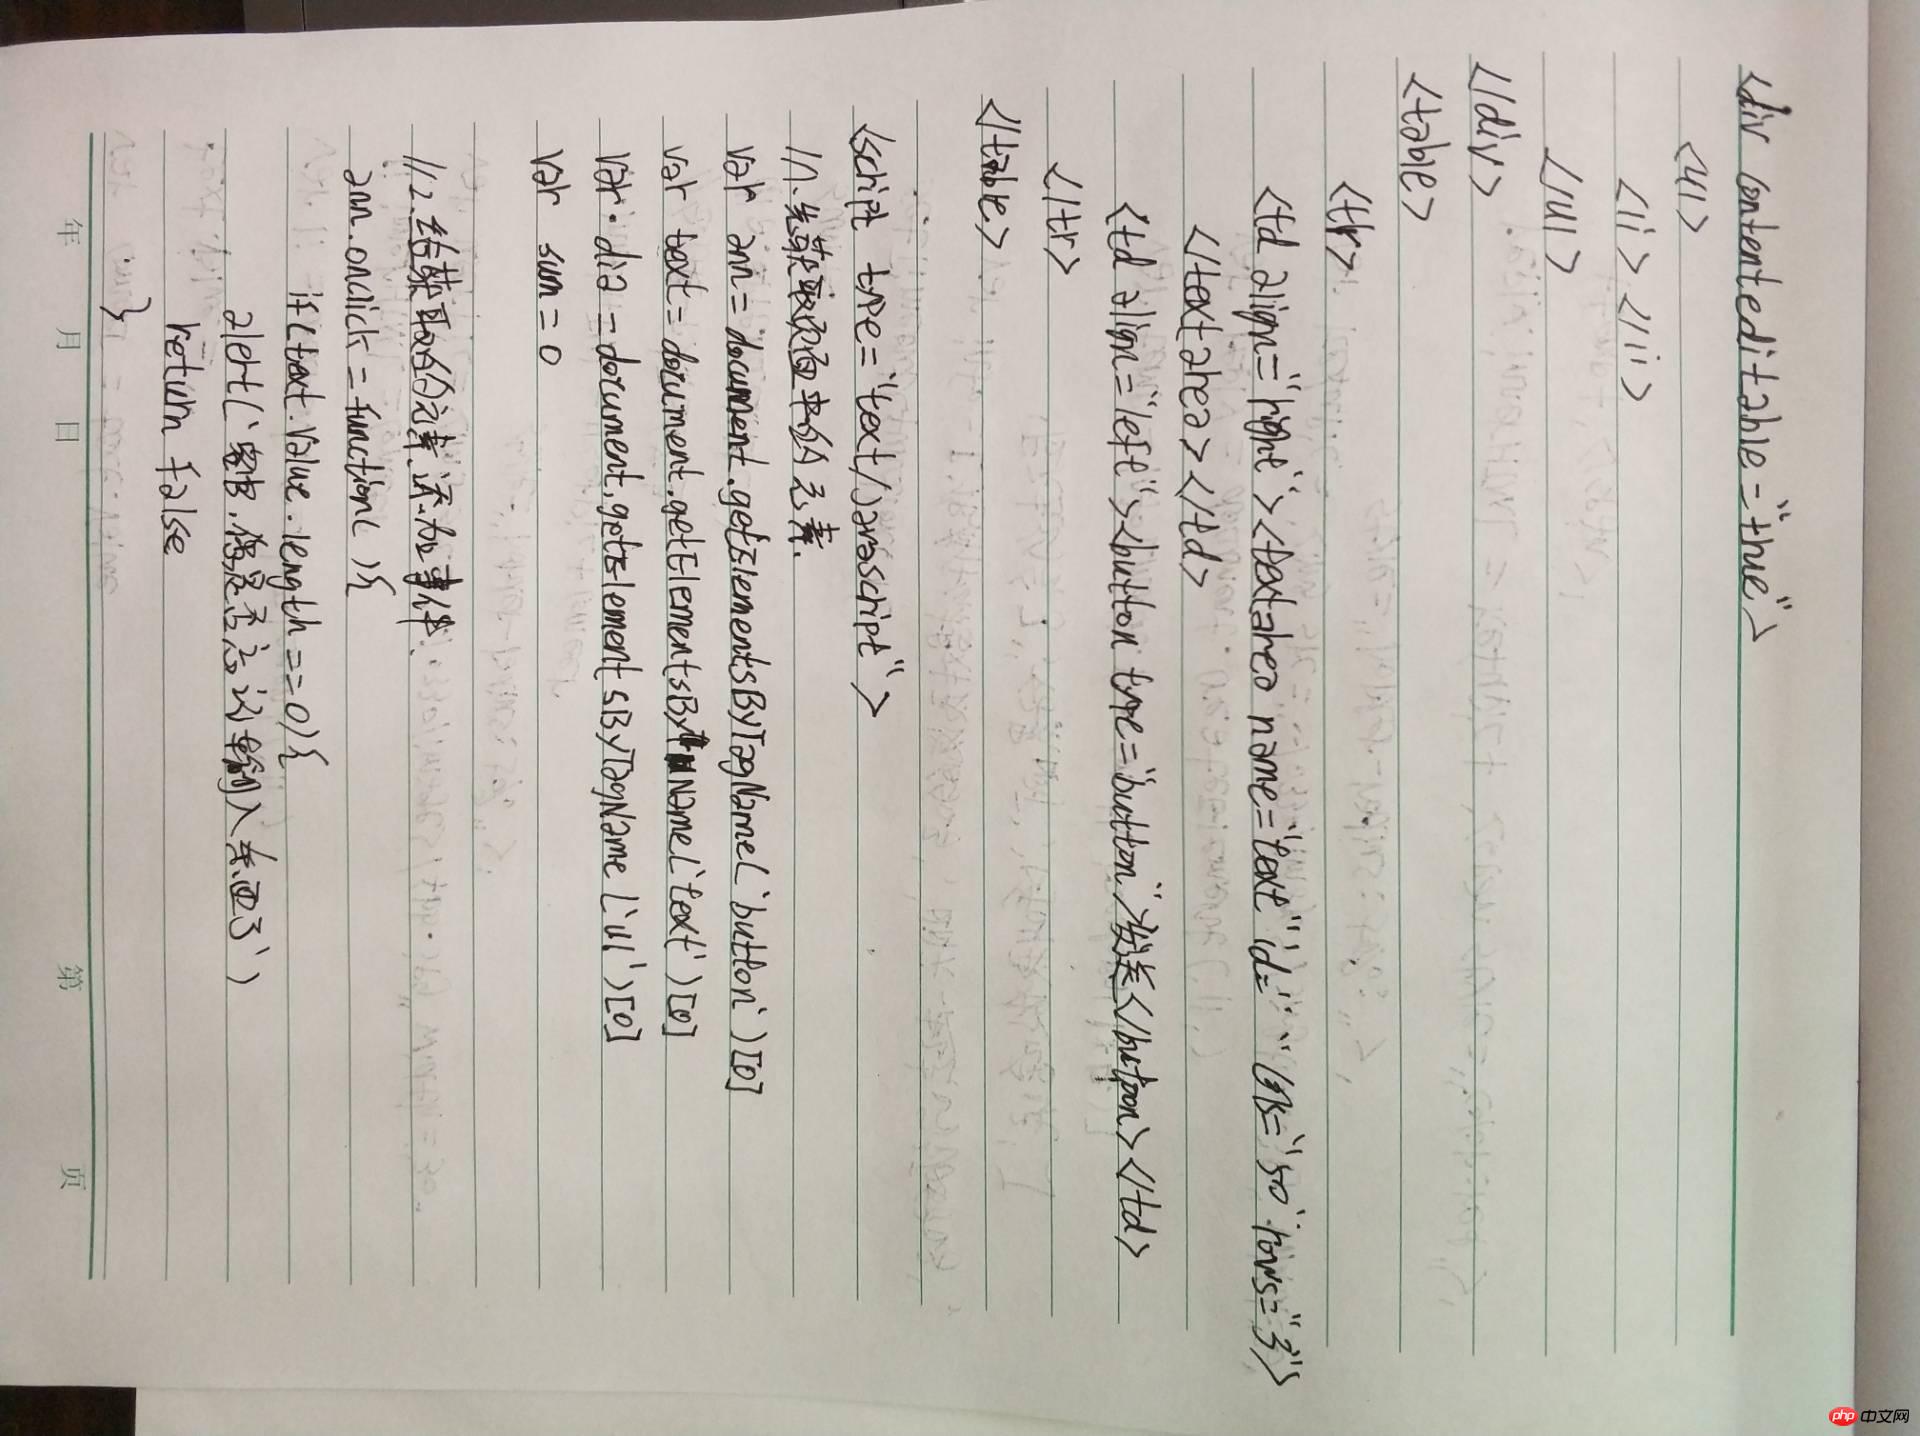 <div contenteditable="true">
<ul>
<li></li>
</ul>
</div>
<table>
<tr>
<td align="right"><textarea name="text" id="" cols="50" rows="3">
</textarea></td>
<td align="left"><button type="button">发送</button></td>
</tr>
</table>
<script type="text/javascript">
//1.先获取页面中的元素.
var ann=document.getElementsByTagName('button')[0]
var text=document.getElementsByName('text')[0]
var dia=document.getElementsByTagName('ul')[0]
var sum=0
//2.给获取的元素添加事件.
ann.onclick=function(){
if(text.value.length==0){
alert('客官.您是否忘记输入东西了')
return false
}
年 月 日 第 页
php 中文网